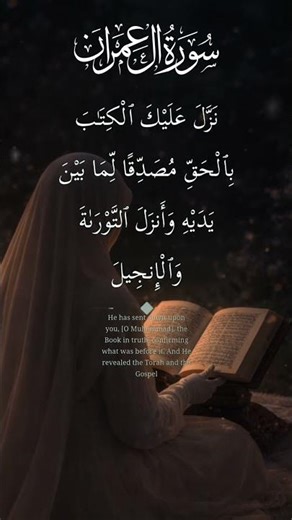 سُورَةُ آلِ عِمْرَان
نَزَّلَ عَلَيْكَ ٱلْكِتَٰبَ
بِٱلْحَقِّ مُصَدِّقًا لِّمَا بَيْنَ
يَدَيْهِ وَأَنزَلَ ٱلتَّوْرَىٰةَ
وَٱلْإِنجِيلَ
He has sent down upon
you, [O Muhammad], the
Book in truth, confirming
what was before it. And He
revealed the Torah and the
Gospel